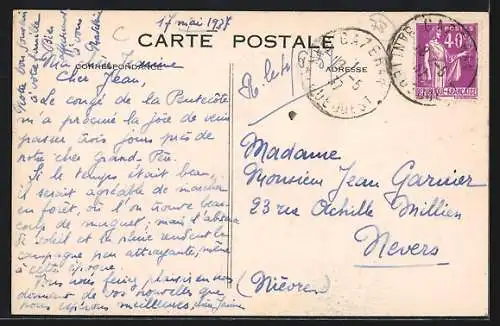 17 mai 1937
C
CARTE POSTALE
CORRESPONDANCE
ADRESSE
Ma Jeannine
Cher Jean,
Le congé de la Pentecôte
m'a procuré la joie de venir
passer trois jours près de
notre cher Grand Père.
Si le temps était beau,
il serait agréable de marcher
en forêt, où l'on trouve beau-
coup de muguet; mais l'absence
de soleil et la pluie rendent la
campagne peu attrayante, même
à cette époque.
nous feriez plaisir en nous
donnant de vos nouvelles que
nous espérons meilleures.
Bien
à votre famille
40
POSTES
RÉPUBLIQUE FRANÇAISE
Madame
Monsieur Jean Garnier
23 rue Achille Millien
Nevers
(Nièvre)